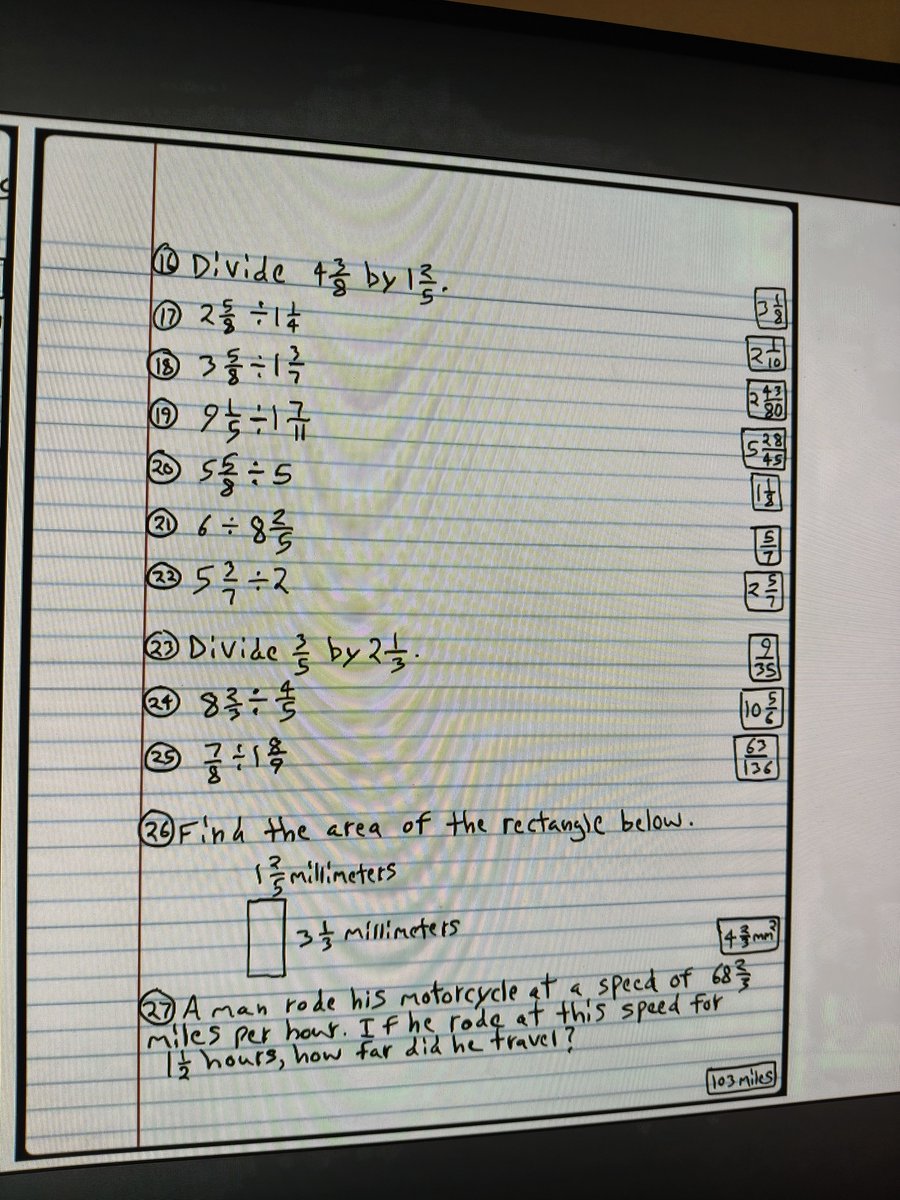 16 Divide 4 3/8 by 1 2/5.
3 1/8
17 2 5/8 ÷ 1 1/4
2 1/10
18 3 5/8 ÷ 1 3/7
2 43/80
19 9 1/5 ÷ 1 7/11
5 28/45
20 5 5/8 ÷ 5
1 1/8
21 6 ÷ 8 2/5
5/7
22 5 3/7 ÷ 2
2 5/7
23 Divide 3/5 by 2 1/3.
9/35
24 8 2/3 ÷ 4/5
10 5/6
25 7/8 ÷ 1 8/9
63/136
26 Find the area of the rectangle below.
1 2/5 millimeters
3 1/3 millimeters
4 2/3 mm²
27 A man rode his motorcycle at a speed of 68 2/3
miles per hour. If he rode at this speed for
1 1/2 hours, how far did he travel?
103 miles